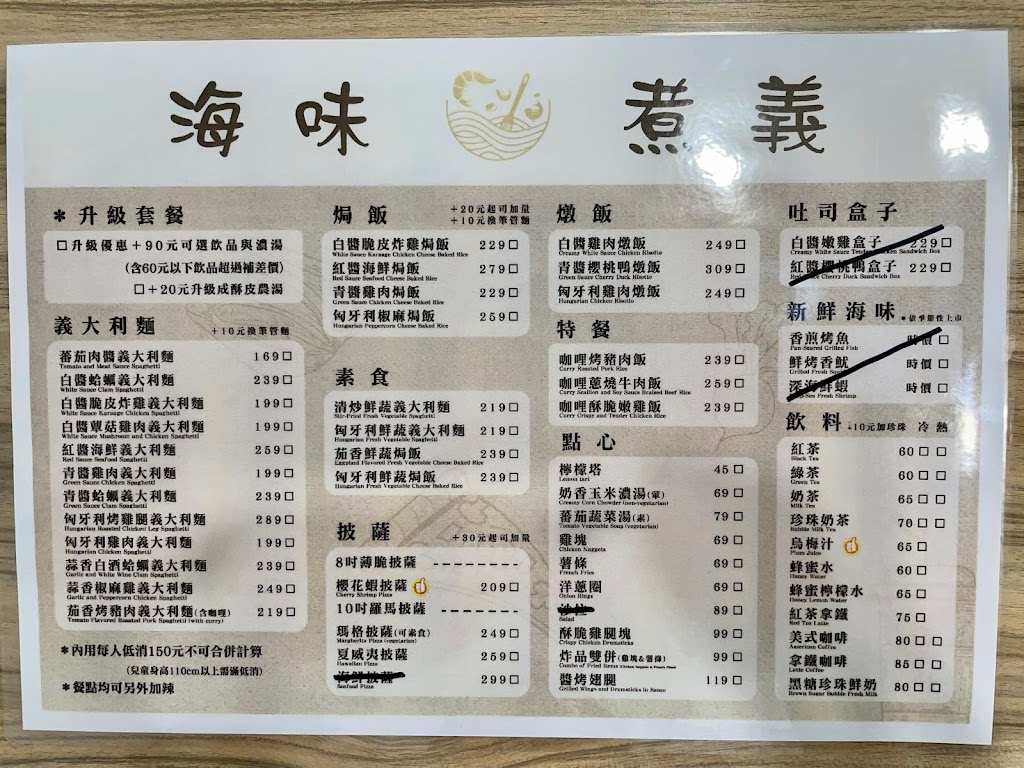 海味 煮義
＊升級套餐
□升級優惠＋90元可選飲品與濃湯
(含60元以下飲品超過補差價)
□＋20元升級成酥皮農湯
義大利麵 ＋10元換筆管麵
蕃茄肉醬義大利麵 169□
Tomato and Meat Sauce Spaghetti
白醬蛤蠣義大利麵 239□
White Sauce Clam Spaghetti
白醬脆皮炸雞義大利麵 199□
White Sauce Karaage Chicken Spaghetti
白醬蕈菇雞肉義大利麵 199□
White Sauce Mushroom and Chicken Spaghetti
紅醬海鮮義大利麵 259□
Red Sauce Seafood Spaghetti
青醬雞肉義大利麵 199□
Green Sauce Chicken Spaghetti
青醬蛤蠣義大利麵 239□
Green Sauce Clam Spaghetti
匈牙利烤雞腿義大利麵 289□
Hungarian Roasted Chicken Leg Spaghetti
匈牙利雞肉義大利麵 199□
Hungarian Chicken Spaghetti
蒜香白酒蛤蠣義大利麵 239□
Garlic and White Wine Clam Spaghetti
蒜香椒麻雞義大利麵 249□
Garlic and Peppercorn Chicken Spaghetti
茄香烤豬肉義大利麵(含咖哩) 219□
Tomato Flavored Roasted Pork Spaghetti (with curry)
＊內用每人低消150元不可合併計算
(兒童身高110cm以上需滿低消)
＊餐點均可另外加辣
焗飯 ＋20元起司加量
＋10元換筆管麵
白醬脆皮炸雞焗飯 229□
White Sauce Karaage Chicken Cheese Baked Rice
紅醬海鮮焗飯 279□
Red Sauce Seafood Cheese Baked Rice
青醬雞肉焗飯 229□
Green Sauce Chicken Cheese Baked Rice
匈牙利椒麻焗飯 259□
Hungarian Peppercorn Cheese Baked Rice
素食
清炒鮮蔬義大利麵 219□
Stir-Fried Fresh Vegetable Spaghetti
匈牙利鮮蔬義大利麵 219□
Hungarian Fresh Vegetable Spaghetti
茄香鮮蔬焗飯 239□
Eggplant Flavored Fresh Vegetable Cheese Baked Rice
匈牙利鮮蔬焗飯 239□
Hungarian Fresh Vegetable Cheese Baked Rice
披薩 ＋30元起司加量
8吋薄脆披薩
櫻花蝦披薩 209□
Cherry Shrimp Pizza
10吋羅馬披薩
瑪格披薩(可素食) 249□
Margherita Pizza (vegetarian)
夏威夷披薩 259□
Hawaiian Pizza
海鮮披薩 299□
Seafood Pizza
燉飯
白醬雞肉燉飯 249□
Creamy White Sauce Chicken Risotto
青醬櫻桃鴨燉飯 309□
Green Sauce Cherry Duck Risotto
匈牙利雞肉燉飯 249□
Hungarian Chicken Risotto
特餐
咖哩烤豬肉飯 239□
Curry Roasted Pork Rice
咖哩蔥燒牛肉飯 259□
Curry Scallion and Soy Sauce Braised Beef Rice
咖哩酥脆嫩雞飯 239□
Curry Crispy and Tender Chicken Rice
點心
檸檬塔 45□
Lemon tart
奶香玉米濃湯(葷) 69□
Creamy Corn Chowder (non-vegetarian)
蕃茄蔬菜湯(素) 79□
Tomato Vegetable Soup (vegetarian)
雞塊 69□
Chicken Nuggets
薯條 69□
French Fries
洋蔥圈 69□
Onion Rings
沙拉 89□
Salad
酥脆雞腿塊 99□
Crispy Chicken Drumsticks
炸品雙併(雞塊&薯條) 99□
Combo of Fried Items Chicken Nuggets & French Fries
醬烤翅腿 119□
Grilled Wings and Drumsticks in Sauce
吐司盒子
白醬嫩雞盒子 229□
Creamy White Sauce Tender Chicken Sandwich Box
紅醬櫻桃鴨盒子 229□
Red Sauce Cherry Duck Sandwich Box
新鮮海味 ＊依季節性上市
香煎烤魚 時價□
Pan-Seared Grilled Fish
鮮烤香魷 時價□
Grilled Fresh Squid
深海鮮蝦 時價□
Deep-Sea Fresh Shrimp
飲料 +10元加珍珠 冷 熱
紅茶 60□ □
Black Tea
綠茶 60□ □
Green Tea
奶茶 65□ □
Milk Tea
珍珠奶茶 70□ □
Bubble Milk Tea
烏梅汁 65□
Plum Juice
蜂蜜水 60□
Honey Water
蜂蜜檸檬水 65□
Honey Lemon Water
紅茶拿鐵 75□
Red Tea Latte
美式咖啡 80□ □
American Coffee
拿鐵咖啡 85□ □
Latte Coffee
黑糖珍珠鮮奶 80□ □
Brown Sugar Bubble Fresh Milk